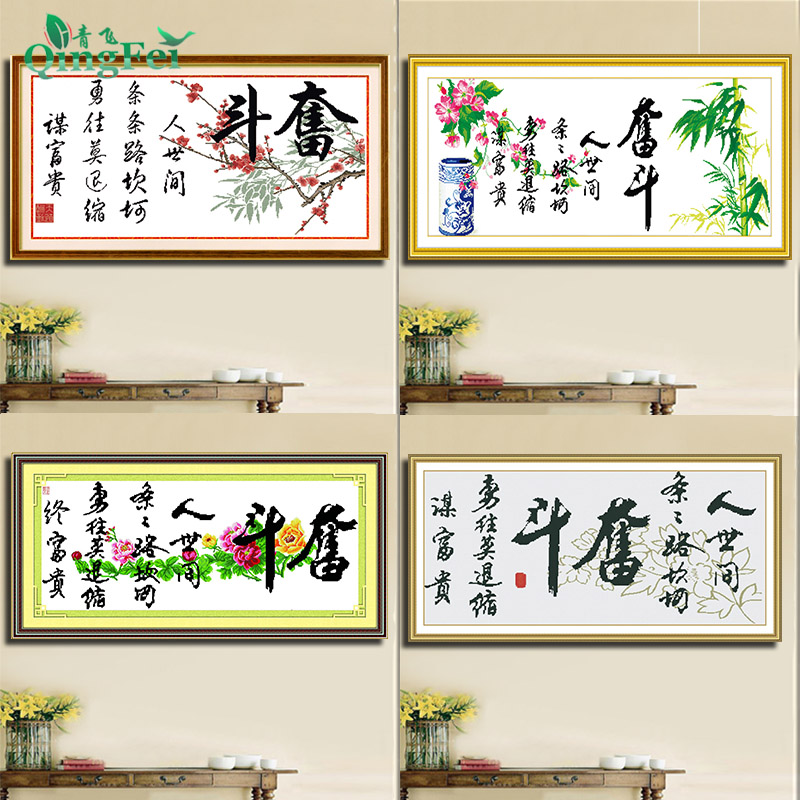 青飞
QingFei
奮斗
人世間
条条路坎坷
勇往莫退缩
谋富貴
奮斗
人世间
条〻路坎坷
勇往莫退缩
谋富貴
奮斗
人世间
条〻路坎坷
勇往莫退缩
终富貴
人世间
条〻路坎坷
奮斗
勇往莫退缩
谋富貴